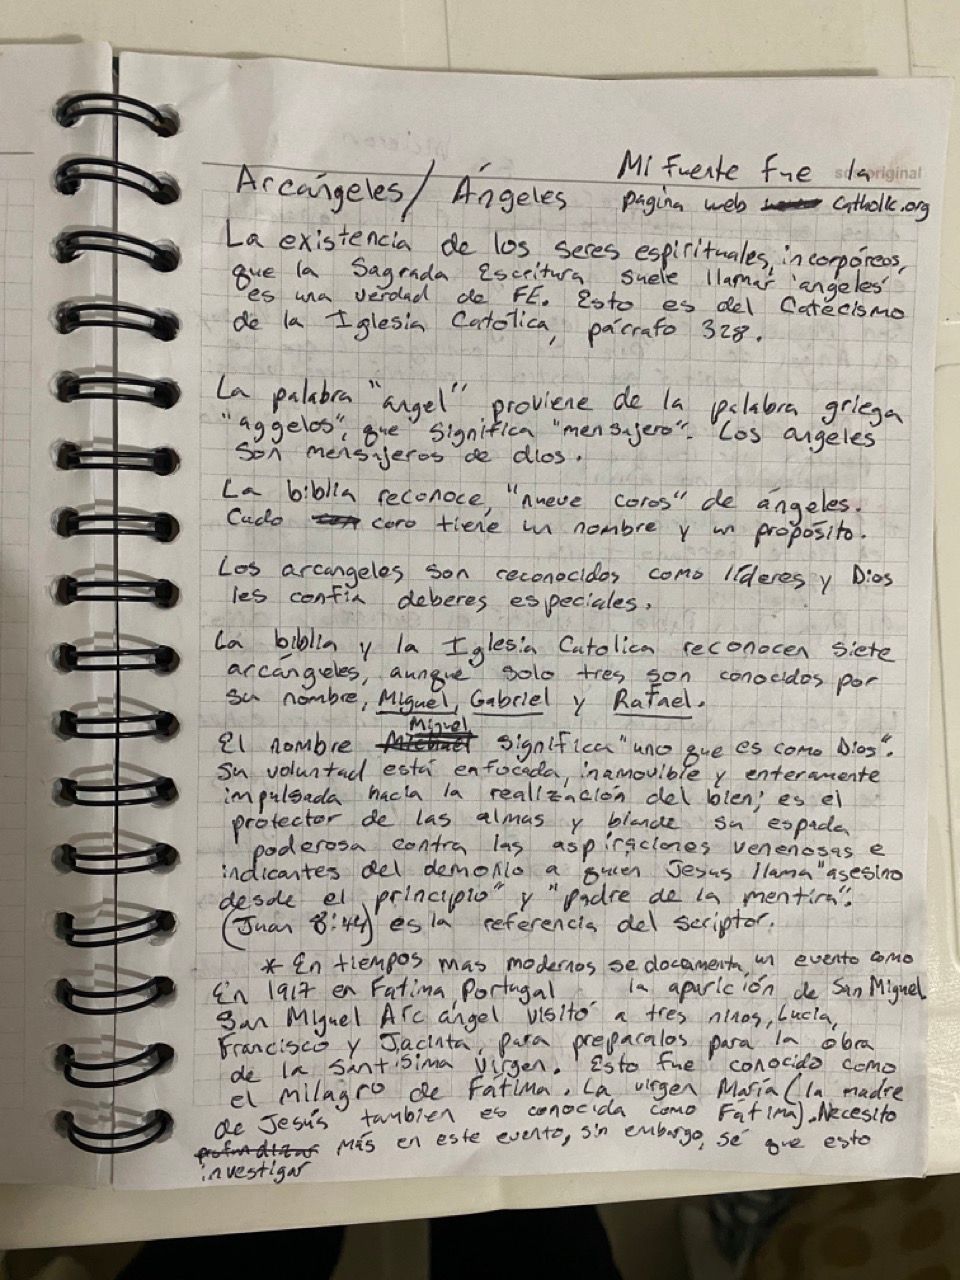 Mi fuente fue la
soloriginal
Arcángeles/ Ángeles pagina web catholic.org
La existencia de los seres espirituales, incorpóreos,
que la Sagrada Escritura suele llamar 'angeles'
es una verdad de FE. Esto es del Catecismo
de la Iglesia Catolica, párrafo 328.
La palabra "angel" proviene de la palabra griega
"aggelos", que significa "mensajero". Los angeles
son mensajeros de dios.
La biblia reconoce, "nueve coros" de ángeles.
Cada coro tiene un nombre y un propósito.
Los arcangeles son reconocidos como líderes y Dios
les confia deberes especiales.
La biblia y la Iglesia Catolica reconocen siete
arcángeles, aunque solo tres son conocidos por
su nombre, Miguel, Gabriel y Rafael.
Miguel
El nombre Michael significa "uno que es como Dios".
Su voluntad está enfocada, inamovible y enteramente
impulsada hacia la realización del bien; es el
protector de las almas y blande su espada
poderosa contra las aspiraciones venenosas e
indicantes del demonio a quien Jesus llama "asesino
desde el principio" y "padre de la mentira".
(Juan 8:44) es la referencia del scriptor.
* En tiempos mas modernos se documenta un evento como
En 1917 en Fatima, Portugal la aparición de San Miguel
San Miguel Arcangel visitó a tres ninos, Lucia,
Francisco y Jacinta, para prepararlos para la obra
de la Santisima Virgen. Esto fue conocido como
el milagro de Fátima. La virgen María (la madre
de Jesús tambien es conocida como Fatima). Necesito
profundizar más en este evento, sin embargo, sé que esto
investigar